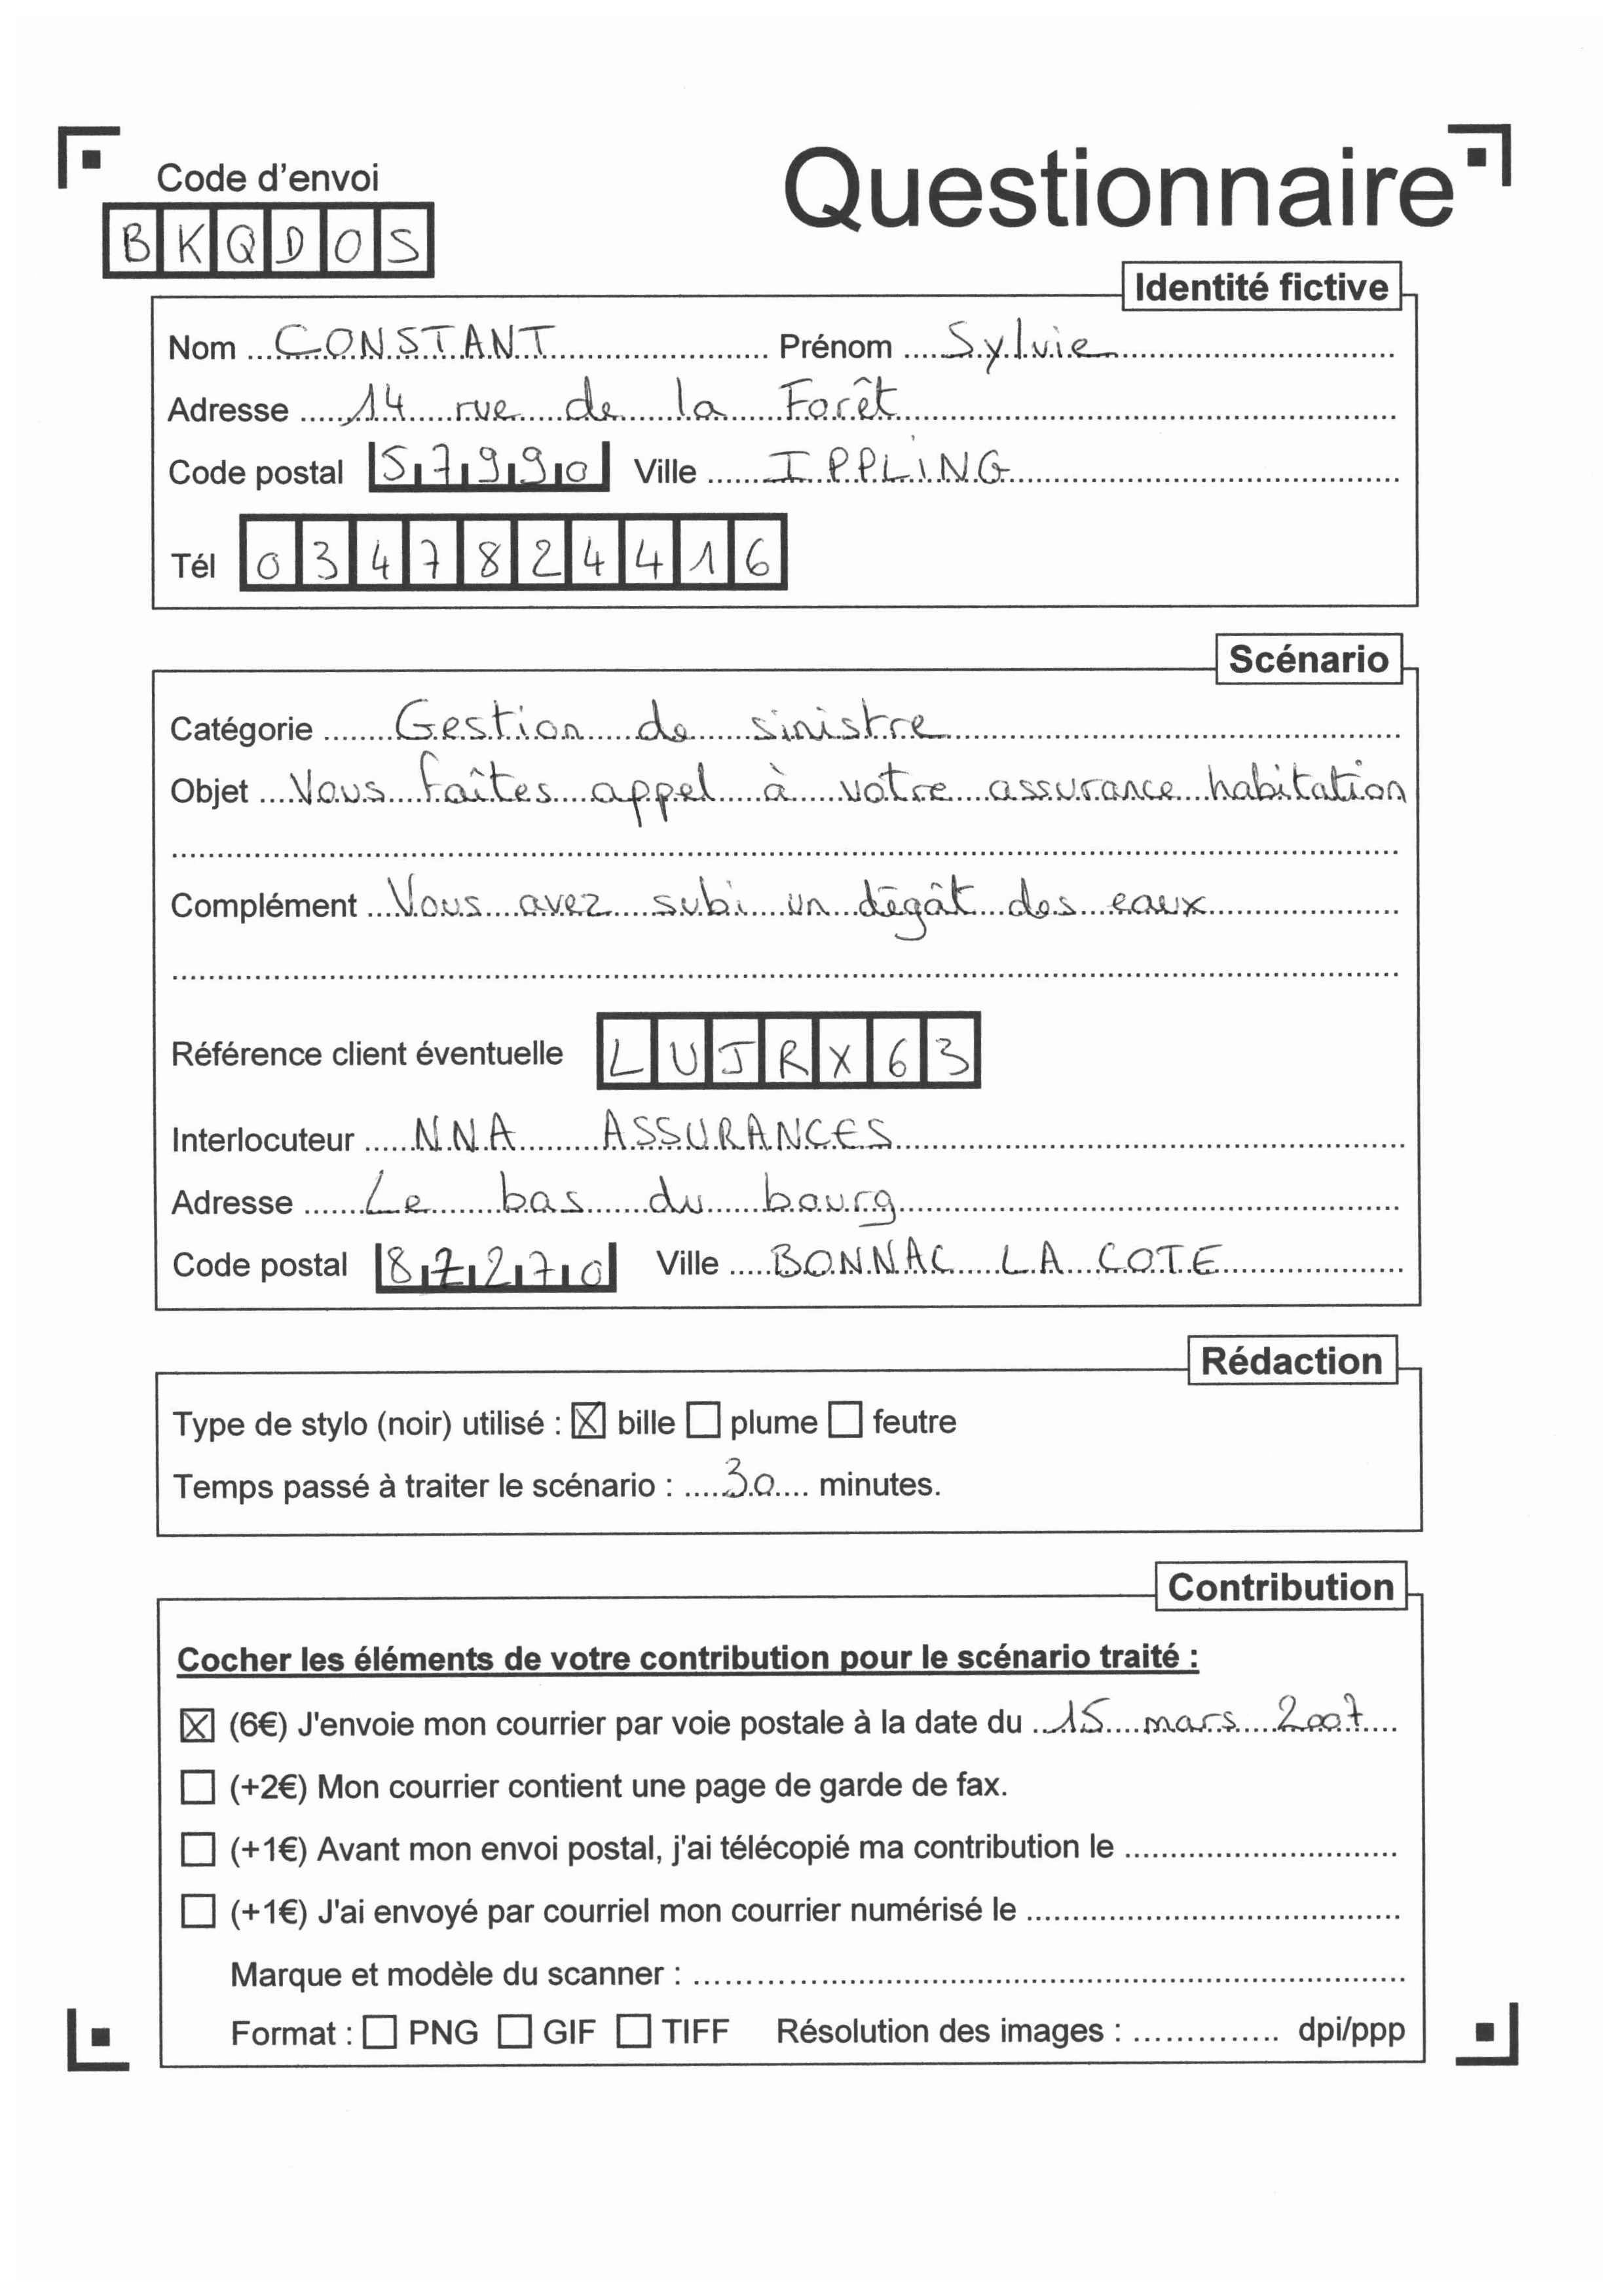 Code d'envoi
Questionnaire
BKQDOS
Identité fictive
Nom CONSTANT Prénom Sylvie
Adresse 14 rue de la Forêt
Code postal 57990 Ville IPPLING
Tél 0347824416
Scénario
Catégorie Gestion de sinistre
Objet Vous faîtes appel à votre assurance habitation
Complément Vous avez subi un dégât des eaux
Référence client éventuelle LUJRX63
Interlocuteur NNA ASSURANCES
Adresse Le bas du bourg
Code postal 87270 Ville BONNAC LA COTE
Rédaction
Type de stylo (noir) utilisé : ☒ bille ☐ plume ☐ feutre
Temps passé à traiter le scénario : 30 minutes.
Contribution
Cocher les éléments de votre contribution pour le scénario traité :
☒ (6€) J'envoie mon courrier par voie postale à la date du 15 mars 2007
☐ (+2€) Mon courrier contient une page de garde de fax.
☐ (+1€) Avant mon envoi postal, j'ai télécopié ma contribution le
☐ (+1€) J'ai envoyé par courriel mon courrier numérisé le
Marque et modèle du scanner :
Format : ☐ PNG ☐ GIF ☐ TIFF Résolution des images : dpi/ppp